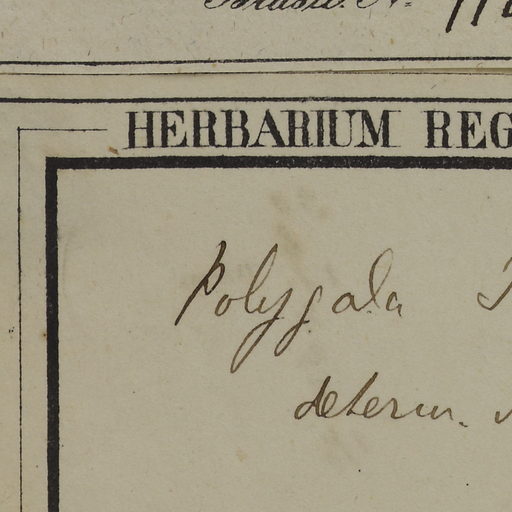 Brasil. N.
HERBARIUM REG
Polygala
determ.